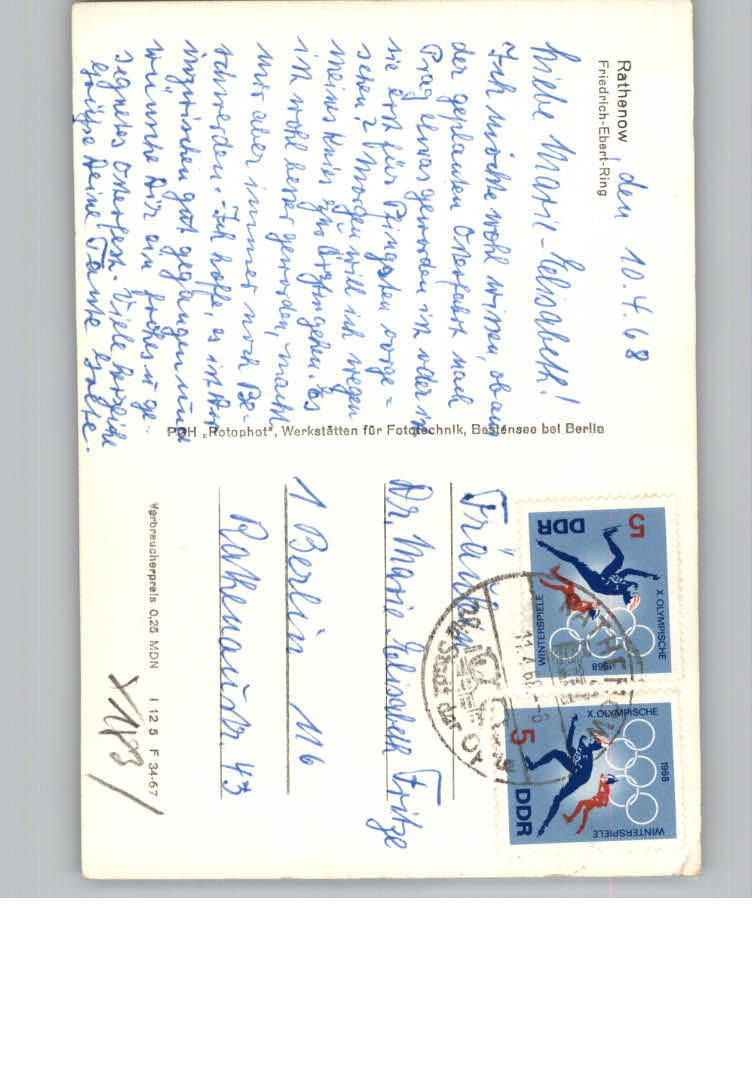 Rathenow
Friedrich-Ebert-Ring
, den 10.4.68
Liebe Marie-Elisabeth!
Ich möchte wohl wissen, ob aus
der geplanten Osterfahrt nach
Prag etwas geworden ist oder ist
sie erst für Pfingsten vorge=
sehen? Morgen will ich wegen
meines Knies zum Arzt gehen. Es
ist wohl besser geworden, macht
mir aber immer noch Be-
schwerden. - Ich hoffe, es ist Dir
inzwischen gut gegangen und
wünsche Dir ein frohes u. ge-
segnetes Osterfest. Viele herzliche
Grüße Deine Tante
PGH „Rotophot“, Werkstätten für Fototechnik, Bestensee bei Berlin
Fräulein
Dr. Marie-Elisabeth Fritze
1 Berlin 116
Rathenaustr. 43
Verbraucherpreis 0,25 MDN I 12 5 F 34-67
DDR
5
X. OLYMPISCHE
WINTERSPIELE
1968
X. OLYMPISCHE
WINTERSPIELE
1968
5
DDR
RATHENOW
Stadt der Optik